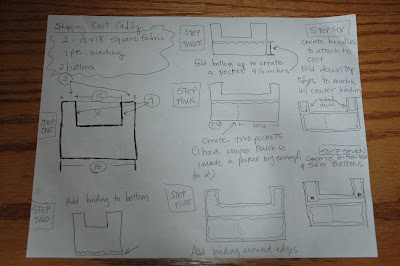 Shopping Cart Caddy
2 - 18x18 square fabric
1 PK. binding
2 buttons
3
12
7
X
18
STEP ONE
STEP TWO
Add binding to bottom
STEP THREE
fold bottom up to create
a pocket 4 1/2 inches
STEP FOUR
Create two pockets
(I have coupon pouch so
I made a pocket big enough
for it)
STEP FIVE
Add binding around edges
STEP SIX
create handles
to attach to
cart
Fold down top
edges to match
w/ center binding
fold down
STEP SEVEN
CREATE
& SEW BUTTONS